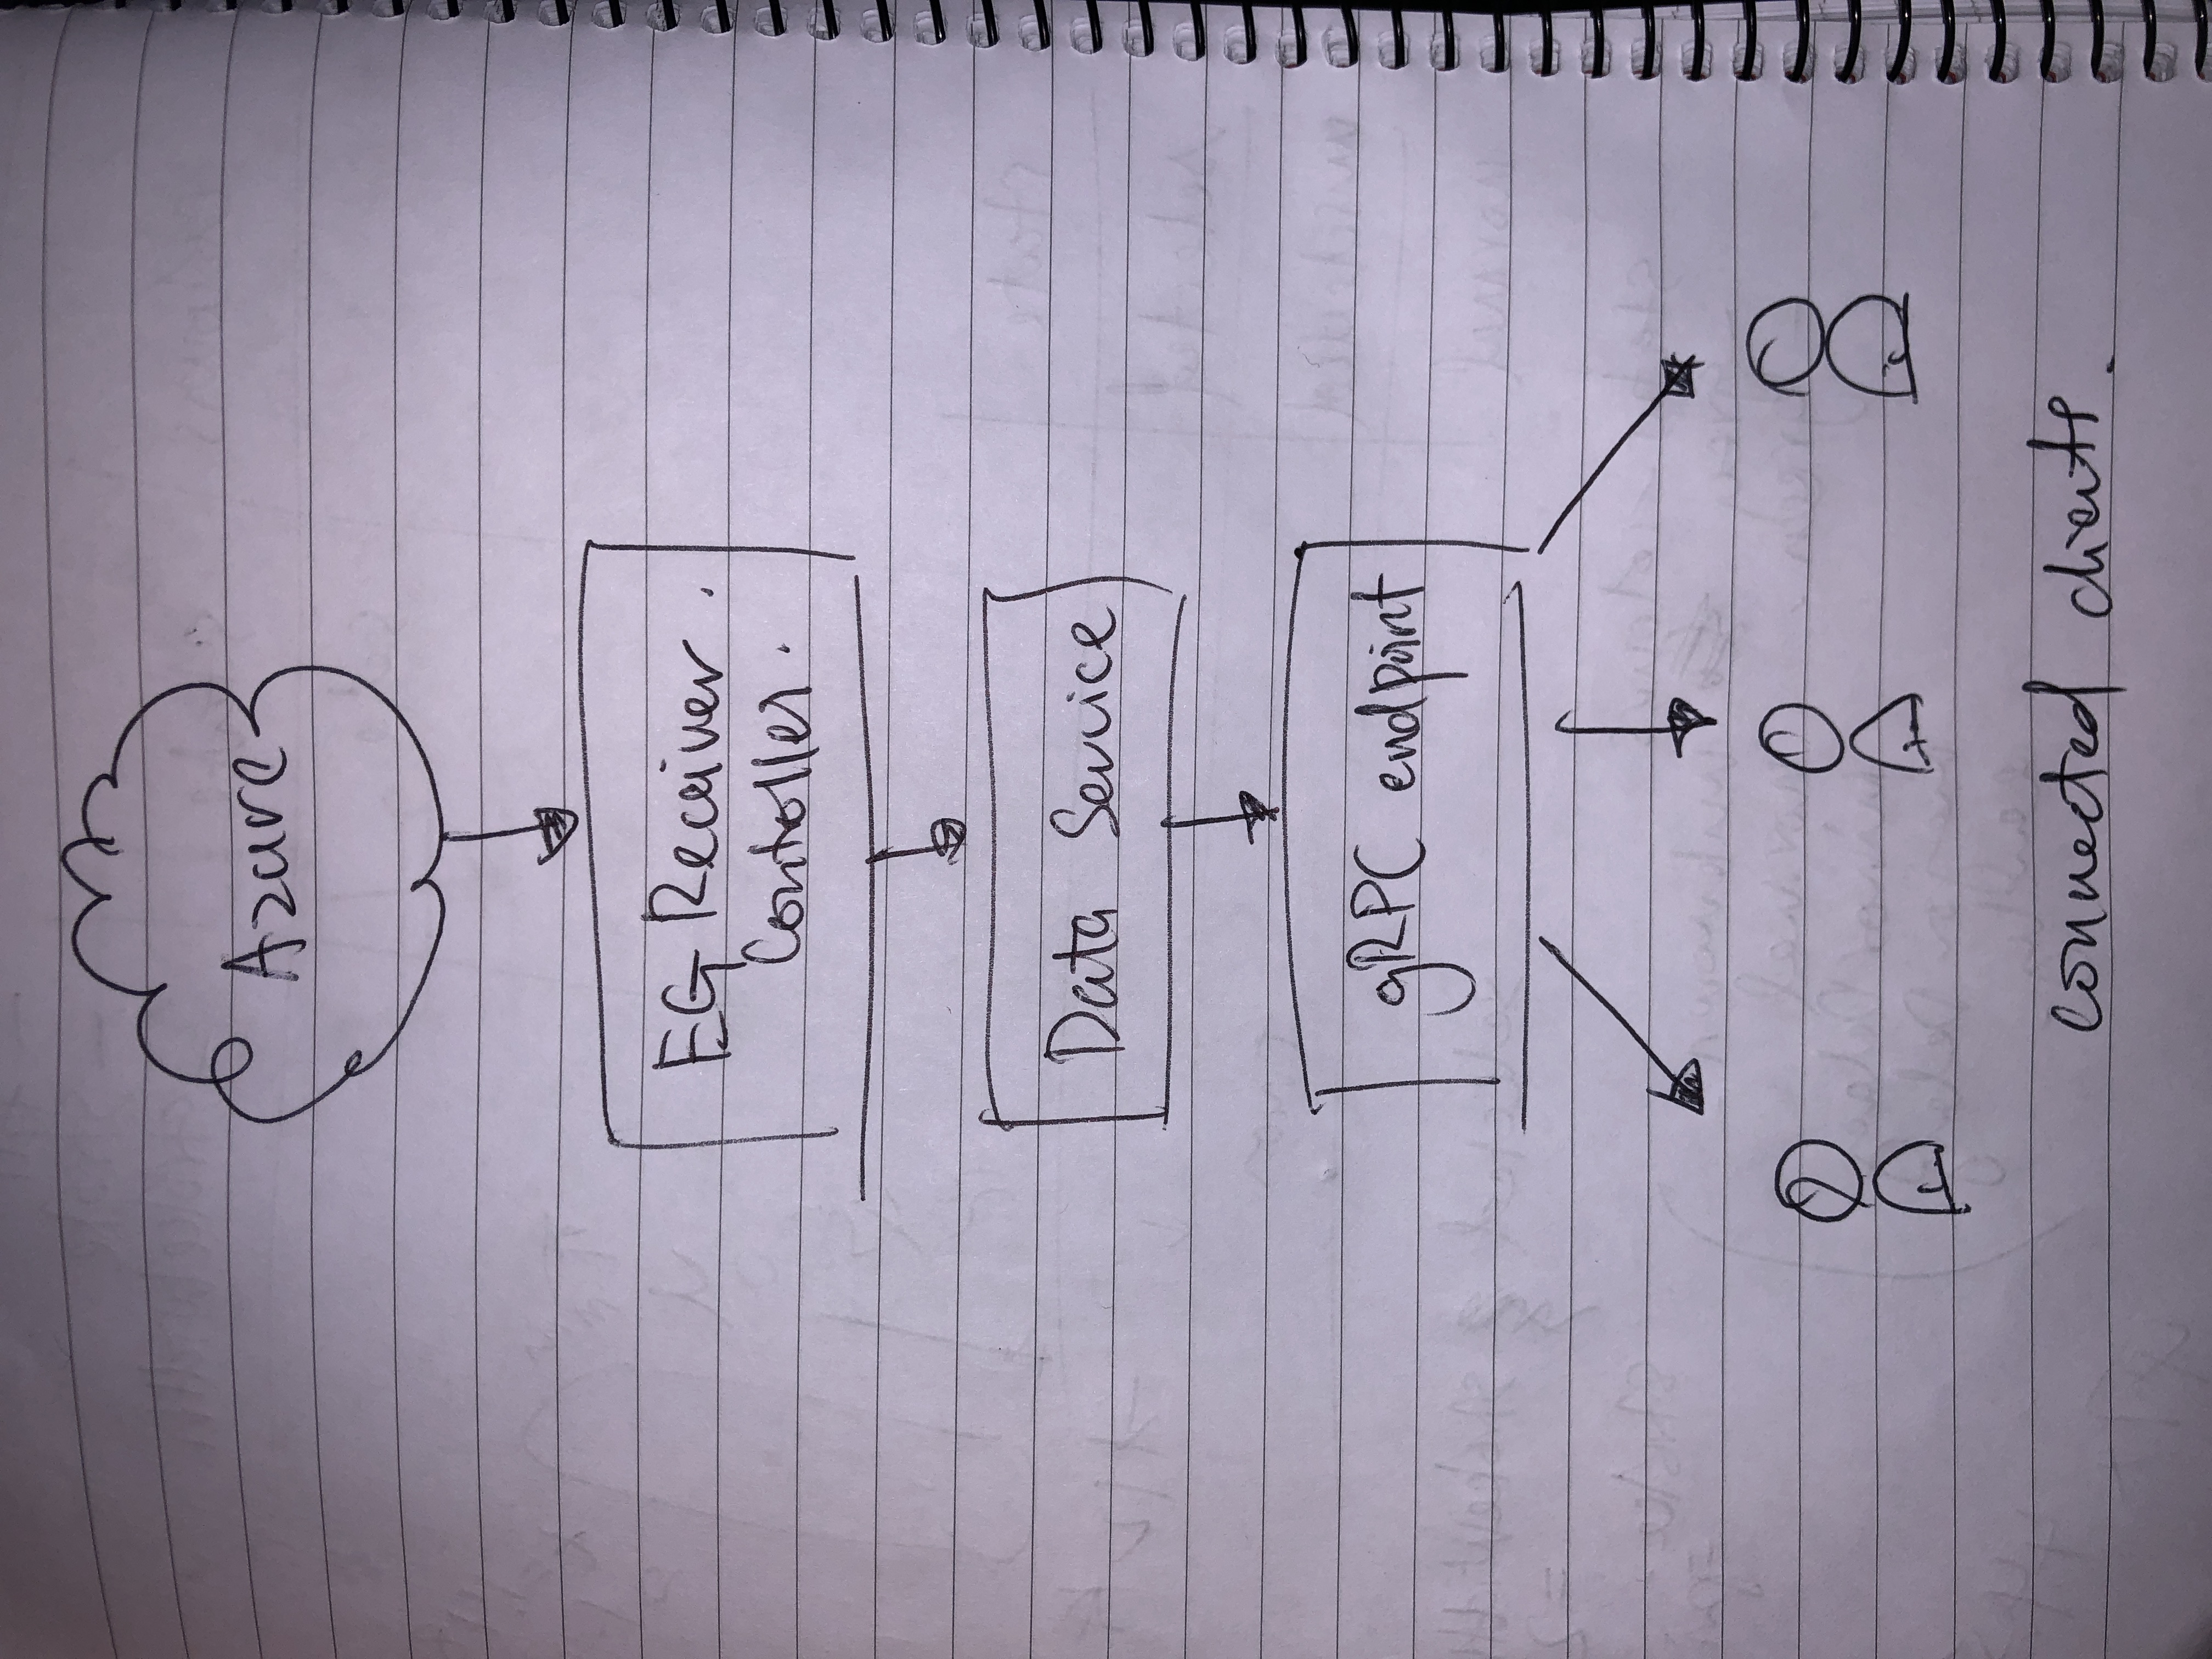 Azure
EG Receiver.
Contoller.
Data Service
gRPC endpoint
connected clients.